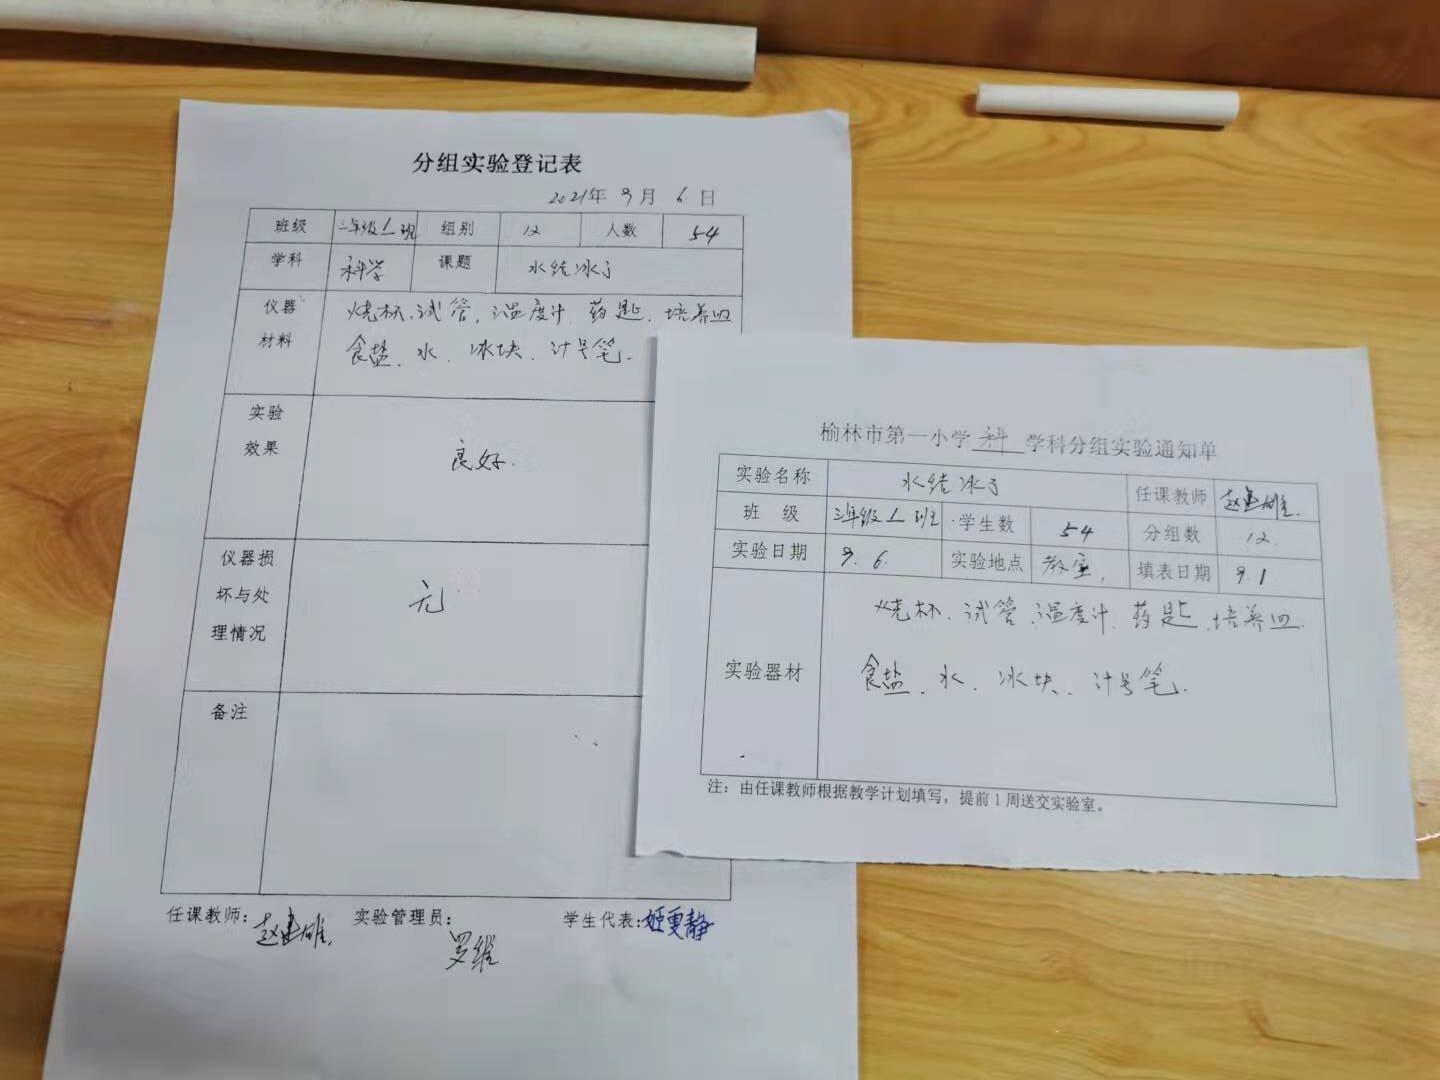 分组实验登记表
2021年 9月 6日
班级 三年级1班 组别 12 人数 54
学科 科学 课题 水结冰了
仪器材料 烧杯、试管、温度计、药匙、培养皿
食盐、水、冰块、计号笔.
实验效果 良好.
仪器损坏与处理情况 无
备注
任课教师: 赵建雄. 实验管理员: 罗维 学生代表: 姬雯静
榆林市第一小学 科 学科分组实验通知单
实验名称 水结冰了 任课教师 赵建雄.
班 级 三年级1班 学生数 54 分组数 12.
实验日期 9.6. 实验地点 教室, 填表日期 9.1
实验器材 烧杯、试管、温度计、药匙、培养皿.
食盐、水、冰块、计号笔.
注：由任课教师根据教学计划填写，提前1周送交实验室。